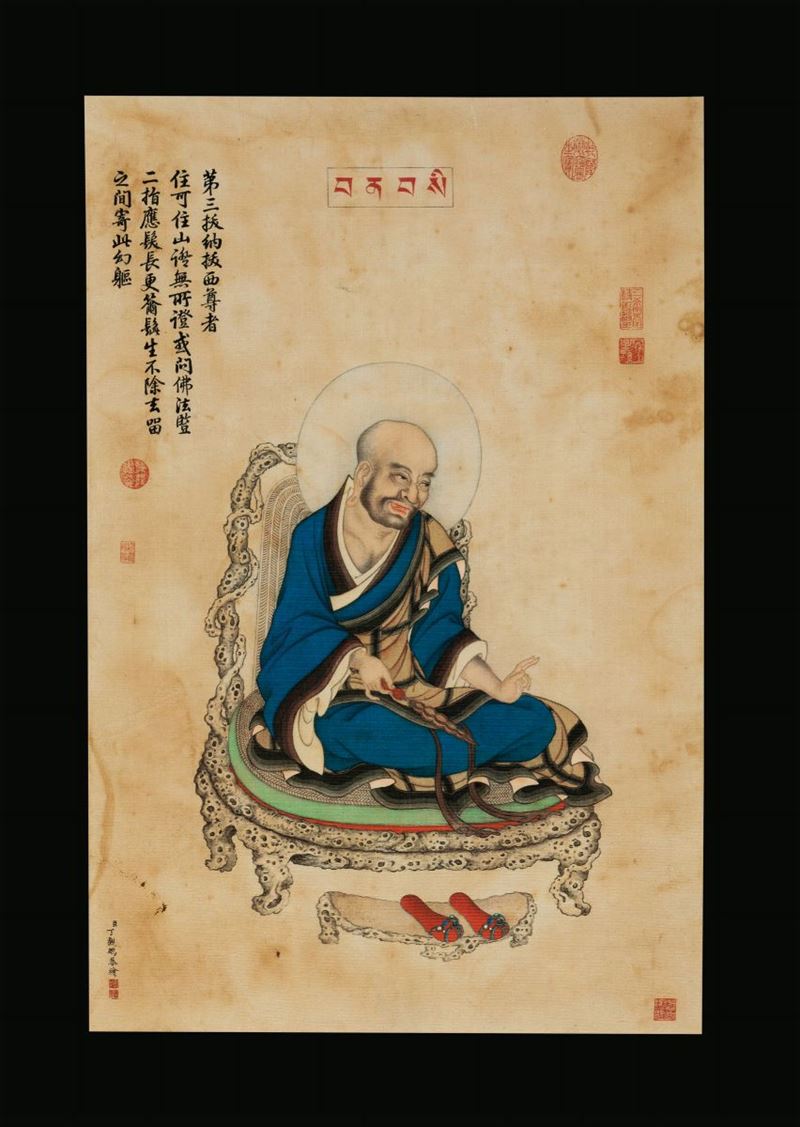 བ ན བ སི
第三拔納拔西尊者
住可住山證無所證或問佛法豎
二指應髮長更薙鬚生不除去留
之間寄此幻軀
臣丁觀鵬恭繪